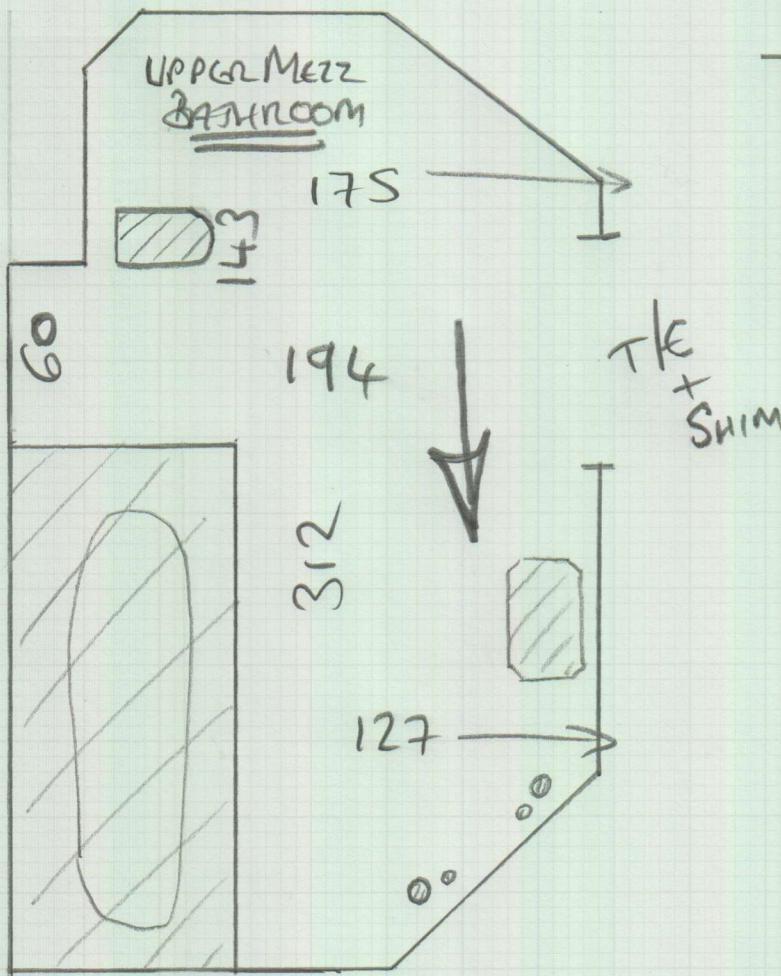 UPPER MEZZ
BATHROOM
175
143
60
194
T/E
+
SHIM
312
127